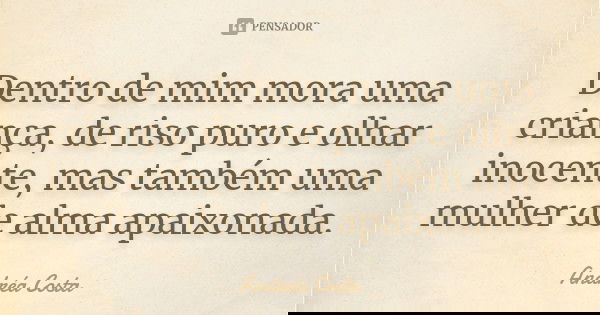 PENSADOR
Dentro de mim mora uma
criança, de riso puro e olhar
inocente, mas também uma
mulher de alma apaixonada.
Andréa Costa